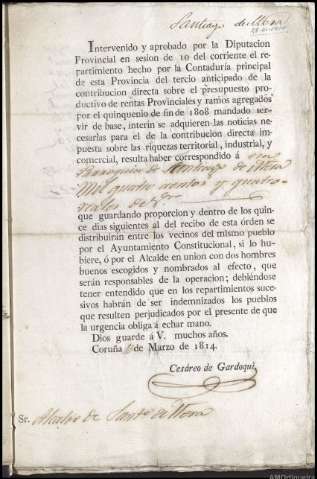 Santiago de
Intervenido y aprobado por la Diputacion
Provincial en sesion de 10 del corriente el re-
partimiento hecho por la Contaduría principal
de esta Provincia del tercio anticipado de la
contribucion directa sobre el presupuesto pro-
ductivo de rentas Provinciales y ramos agregados
por el quinquenio de fin de 1808 mandado ser-
vir de base, interin se adquieren las noticias ne-
cesarlas para el de la contribucion directa im-
puesta sobre las riquezas territorial, industrial, y
comercial, resulta haber correspondido á esa
de Santiago de
Mil quatro cientos y quatro
reales de
que guardando proporcion y dentro de los quin-
ce dias siguientes al del recibo de esta órden se
distribuirán entre los vecinos del mismo pueblo
por el Ayuntamiento Constitucional, si lo hu-
biere, ó por el Alcalde en union con dos hombres
buenos escogidos y nombrados al efecto, que
serán responsables de la operacion; debiéndose
tener entendido que en los repartimientos suce-
sivos habrán de ser indemnizados los pueblos
que resulten perjudicados por el presente de que
la urgencia obliga á echar mano.
Dios guarde á V. muchos años.
Coruña de Marzo de 1814.
Cesáreo de Gardoqui,
Sr. Alcalde de Santo de